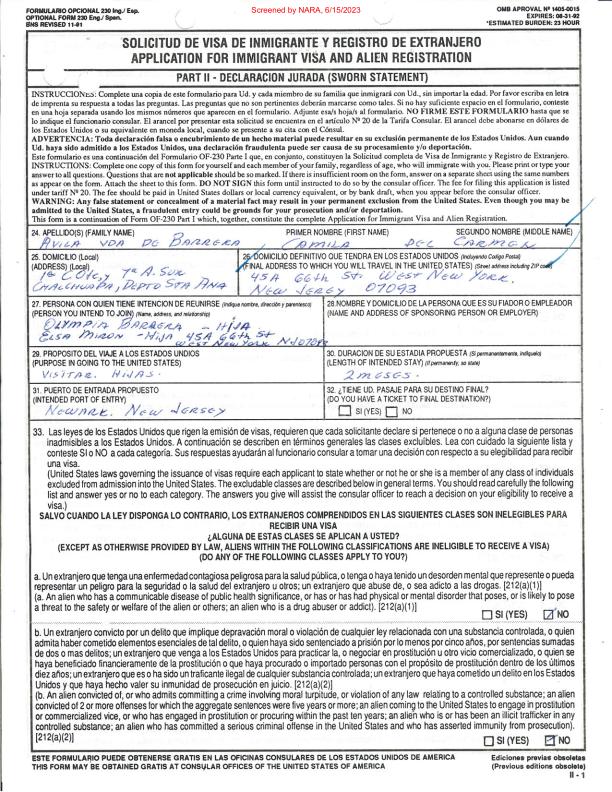 Screened by NARA, 6/15/2023
FORMULARIO OPCIONAL 230 Ing./ Esp.
OPTIONAL FORM 230 Eng./ Span.
BNS REVISED 11-91
OMB APROVAL Nº 1405-0015
EXPIRES: 08-31-92
*ESTIMATED BURDEN: 23 HOUR
SOLICITUD DE VISA DE INMIGRANTE Y REGISTRO DE EXTRANJERO
APPLICATION FOR IMMIGRANT VISA AND ALIEN REGISTRATION
PART II - DECLARACION JURADA (SWORN STATEMENT)
INSTRUCCIONES: Complete una copia de este formulario para Ud. y cada miembro de su familia que inmigrará con Ud., sin importar la edad. Por favor escriba en letra
de imprenta su respuesta a todas las preguntas. Las preguntas que no son pertinentes deberán marcarse como tales. Si no hay suficiente espacio en el formulario, conteste
en una hoja separada usando los mismos números que aparecen en el formulario. Adjunte esa/s hoja/s al formulario. NO FIRME ESTE FORMULARIO hasta que se
lo indique el funcionario consular. El arancel por presentar esta solicitud se encuentra en el artículo Nº 20 de la Tarifa Consular. El arancel debe abonarse en dólares
de los Estados Unidos o su equivalente en moneda local, cuando se presente a su cita con el Cónsul.
ADVERTENCIA: Toda declaración falsa o encubrimiento de un hecho material puede resultar en su exclusión permanente de los Estados Unidos. Aun cuando
Ud. haya sido admitido a los Estados Unidos, una declaración fraudulenta puede ser causa de su procesamiento y/o deportación.
Este formulario es una continuación del Formulario OF-230 Parte I que, en conjunto, constituyen la Solicitud Completa de Visa de Inmigrante y Registro de Extranjero.
INSTRUCTIONS: Complete one copy of this form for yourself and each member of your family, regardless of age, who will immigrate with you. Please print or type your
answer to all questions. Questions that are not applicable should be so marked. If there is insufficient room on the form, answer on a separate sheet using the same numbers
as appear on the form. Attach the sheet to this form. DO NOT SIGN this form until instructed to do so by the consular officer. The fee for filing this application is listed
under tariff Nº 20. The fee should be paid in United States dollars or local currency equivalent, or by bank draft, when you appear before the consular officer.
WARNING: Any false statement or concealment of a material fact may result in your permanent exclusion from the United States. Even though you may be
admitted to the United States, a fraudulent entry could be grounds for your prosecution and/or deportation.
This form is a continuation of Form OF-230 Part I which, together, constitute the complete Application for Immigrant Visa and Alien Registration.
24. APELLIDO(S) (FAMILY NAME) PRIMER NOMBRE (FIRST NAME) SEGUNDO NOMBRE (MIDDLE NAME)
AVILA VDA DE BARRERA CAMILA DEL CARMEN
25. DOMICILIO (Local)
(ADDRESS) (Local)
CHALCHUAPA, DEPTO STA ANA
26. DOMICILIO DEFINITIVO QUE TENDRA EN LOS ESTADOS UNIDOS (Incluyendo Codigo Postal)
(FINAL ADDRESS TO WHICH YOU WILL TRAVEL IN THE UNITED STATES) (Street address including ZIP code)
45A 66th St. WEST NEW YORK.
NEW JERSY 07093
27. PERSONA CON QUIEN TIENE INTENCION DE REUNIRSE (Indique nombre, dirección y parentesco)
(PERSON YOU INTEND TO JOIN) (Name, address, and relationship)
OLYMPIA BARRERA - HIJA
ELSA MIRON - HIJA 45A 66th St
WEST NEW YORK NJ 07093
28. NOMBRE Y DOMICILIO DE LA PERSONA QUE ES SU FIADOR O EMPLEADOR
(NAME AND ADDRESS OF SPONSORING PERSON OR EMPLOYER)
29. PROPOSITO DEL VIAJE A LOS ESTADOS UNDIOS
(PURPOSE IN GOING TO THE UNITED STATES)
VISITAR HIJAS.
30. DURACION DE SU ESTADIA PROPUESTA (Si permanentemente, indíquelo)
(LENGTH OF INTENDED STAY) (If permanently, so state)
2 MESES.
31. PUERTO DE ENTRADA PROPUESTO
(INTENDED PORT OF ENTRY)
NEWARK. NEW JERSEY
32. ¿TIENE UD. PASAJE PARA SU DESTINO FINAL?
(DO YOU HAVE A TICKET TO FINAL DESTINATION?)
SI (YES) NO
33. Las leyes de los Estados Unidos que rigen la emisión de visas, requieren que cada solicitante declare si pertenece o no a alguna clase de personas
inadmisibles a los Estados Unidos. A continuación se describen en términos generales las clases excluíbles. Lea con cuidado la siguiente lista y
conteste SI o NO a cada categoría. Sus respuestas ayudarán al funcionario consular a tomar una decisión con respecto a su elegibilidad para recibir
una visa.
(United States laws governing the issuance of visas require each applicant to state whether or not he or she is a member of any class of individuals
excluded from admission into the United States. The excludable classes are described below in general terms. You should read carefully the following
list and answer yes or no to each category. The answers you give will assist the consular officer to reach a decision on your eligibility to receive a
visa.)
SALVO CUANDO LA LEY DISPONGA LO CONTRARIO, LOS EXTRANJEROS COMPRENDIDOS EN LAS SIGUIENTES CLASES SON INELEGIBLES PARA
RECIBIR UNA VISA
¿ALGUNA DE ESTAS CLASES SE APLICAN A USTED?
(EXCEPT AS OTHERWISE PROVIDED BY LAW, ALIENS WITHIN THE FOLLOWING CLASSIFICATIONS ARE INELIGIBLE TO RECEIVE A VISA)
(DO ANY OF THE FOLLOWING CLASSES APPLY TO YOU?)
a. Un extranjero que tenga una enfermedad contagiosa peligrosa para la salud pública, o tenga o haya tenido un desorden mental que represente o pueda
representar un peligro para la seguridad o la salud del extranjero u otros; un extranjero que abuse de, o sea adicto a las drogas. [212(a)(1)]
(a. An alien who has a communicable disease of public health significance, or has or has had physical or mental disorder that poses, or is likely to pose
a threat to the safety or welfare of the alien or others; an alien who is a drug abuser or addict). [212(a)(1)]
SI (YES) NO
b. Un extranjero convicto por un delito que implique depravación moral o violación de cualquier ley relacionada con una substancia controlada, o quien
admita haber cometido elementos esenciales de tal delito, o quien haya sido sentenciado a prisión por lo menos por cinco años, por sentencias sumadas
de dos o mas delitos; un extranjero que venga a los Estados Unidos para practicar la, o negociar en prostitución u otro vicio comercializado, o quien se
haya beneficiado financieramente de la prostitución o que haya procurado o importado personas con el propósito de prostitución dentro de los últimos
diez años; un extranjero que es o ha sido un traficante ilegal de cualquier substancia controlada; un extranjero que haya cometido un delito en los Estados
Unidos y que haya hecho valer su inmunidad de prosecución en juicio. [212(a)(2)]
(b. An alien convicted of, or who admits committing a crime involving moral turpitude, or violation of any law relating to a controlled substance; an alien
convicted of 2 or more offenses for which the aggregate sentences were five years or more; an alien coming to the United States to engage in prostitution
or commercialized vice, or who has engaged in prostitution or procuring within the past ten years; an alien who is or has been an illicit trafficker in any
controlled substance; an alien who has committed a serious criminal offense in the United States and who has asserted immunity from prosecution).
[212(a)(2)]
SI (YES) NO
ESTE FORMULARIO PUEDE OBTENERSE GRATIS EN LAS OFICINAS CONSULARES DE LOS ESTADOS UNIDOS DE AMERICA
THIS FORM MAY BE OBTAINED GRATIS AT CONSULAR OFFICES OF THE UNITED STATES OF AMERICA
Ediciones previas obsoletas
(Previous editions obsolete)
II - 1